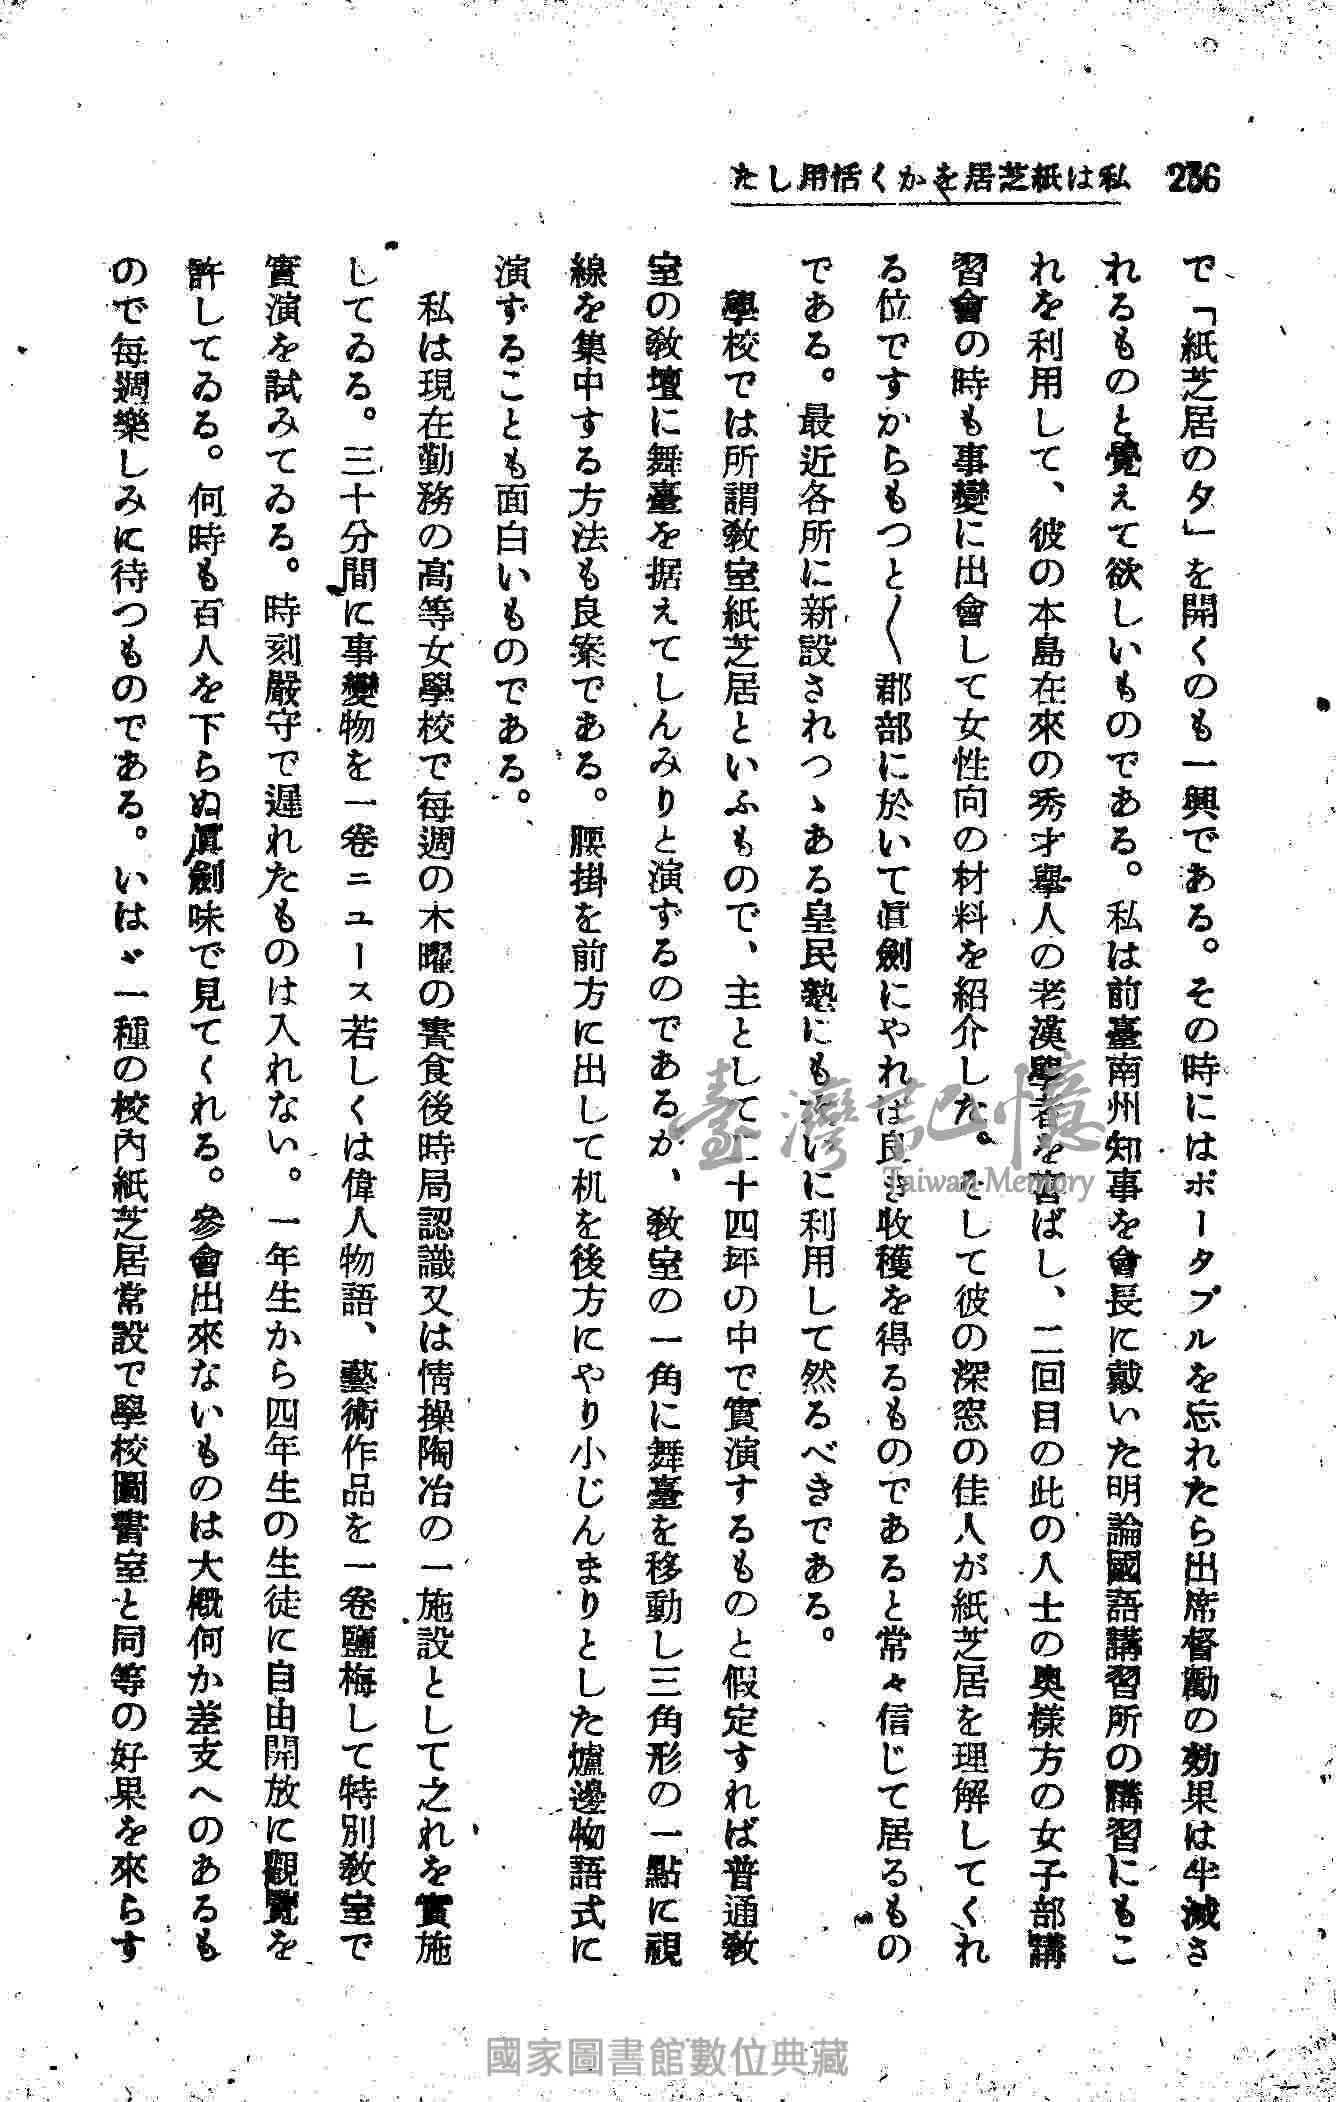 236 私は紙芝居をかく活用した
で「紙芝居の夕」を開くのも一興である。その時にはポータブルを忘れたら出席督勵の効果は半減さ
れるものと覺えて欲しいものである。私は前臺南州知事を會長に戴いた明論國語講習所の講習にもこ
れを利用して、彼の本島在來の秀才擧人の老漢學者を喜ばし、二回目の此の人士の奥樣方の女子部講
習會の時も事變に出會して女性向の材料を紹介した。そして彼の深窓の佳人が紙芝居を理解してくれ
る位ですからもつと〳〵郡部に於いて眞劍にやれば良き收穫を得るものであると常々信じて居るもの
である。最近各所に新設されつゝある皇民塾にも大いに利用して然るべきである。
學校では所謂教室紙芝居といふもので、主として二十四坪の中で實演するものと假定すれば普通教
室の教壇に舞臺を据えてしんみりと演ずるのであるが、教室の一角に舞臺を移動し三角形の一點に視
線を集中する方法も良案である。腰掛を前方に出して机を後方にやり小じんまりとした爐邊物語式に
演ずることも面白いものである。
私は現在勤務の高等女學校で毎週の木曜の晝食後時局認識又は情操陶冶の一施設として之れを實施
してゐる。三十分間に事變物を一卷ニュース若しくは偉人物語、藝術作品を一卷鹽梅して特別教室で
實演を試みてゐる。時刻嚴守で遲れたものは入れない。一年生から四年生の生徒に自由開放に觀覽を
許してゐる。何時も百人を下らぬ眞劍味で見てくれる。參會出來ないものは大概何か差支へのあるも
ので毎週樂しみに待つものである。いはゞ一種の校內紙芝居常設で學校圖書室と同等の好果を來らす
臺灣記憶
Taiwan Memory
國家圖書館數位典藏